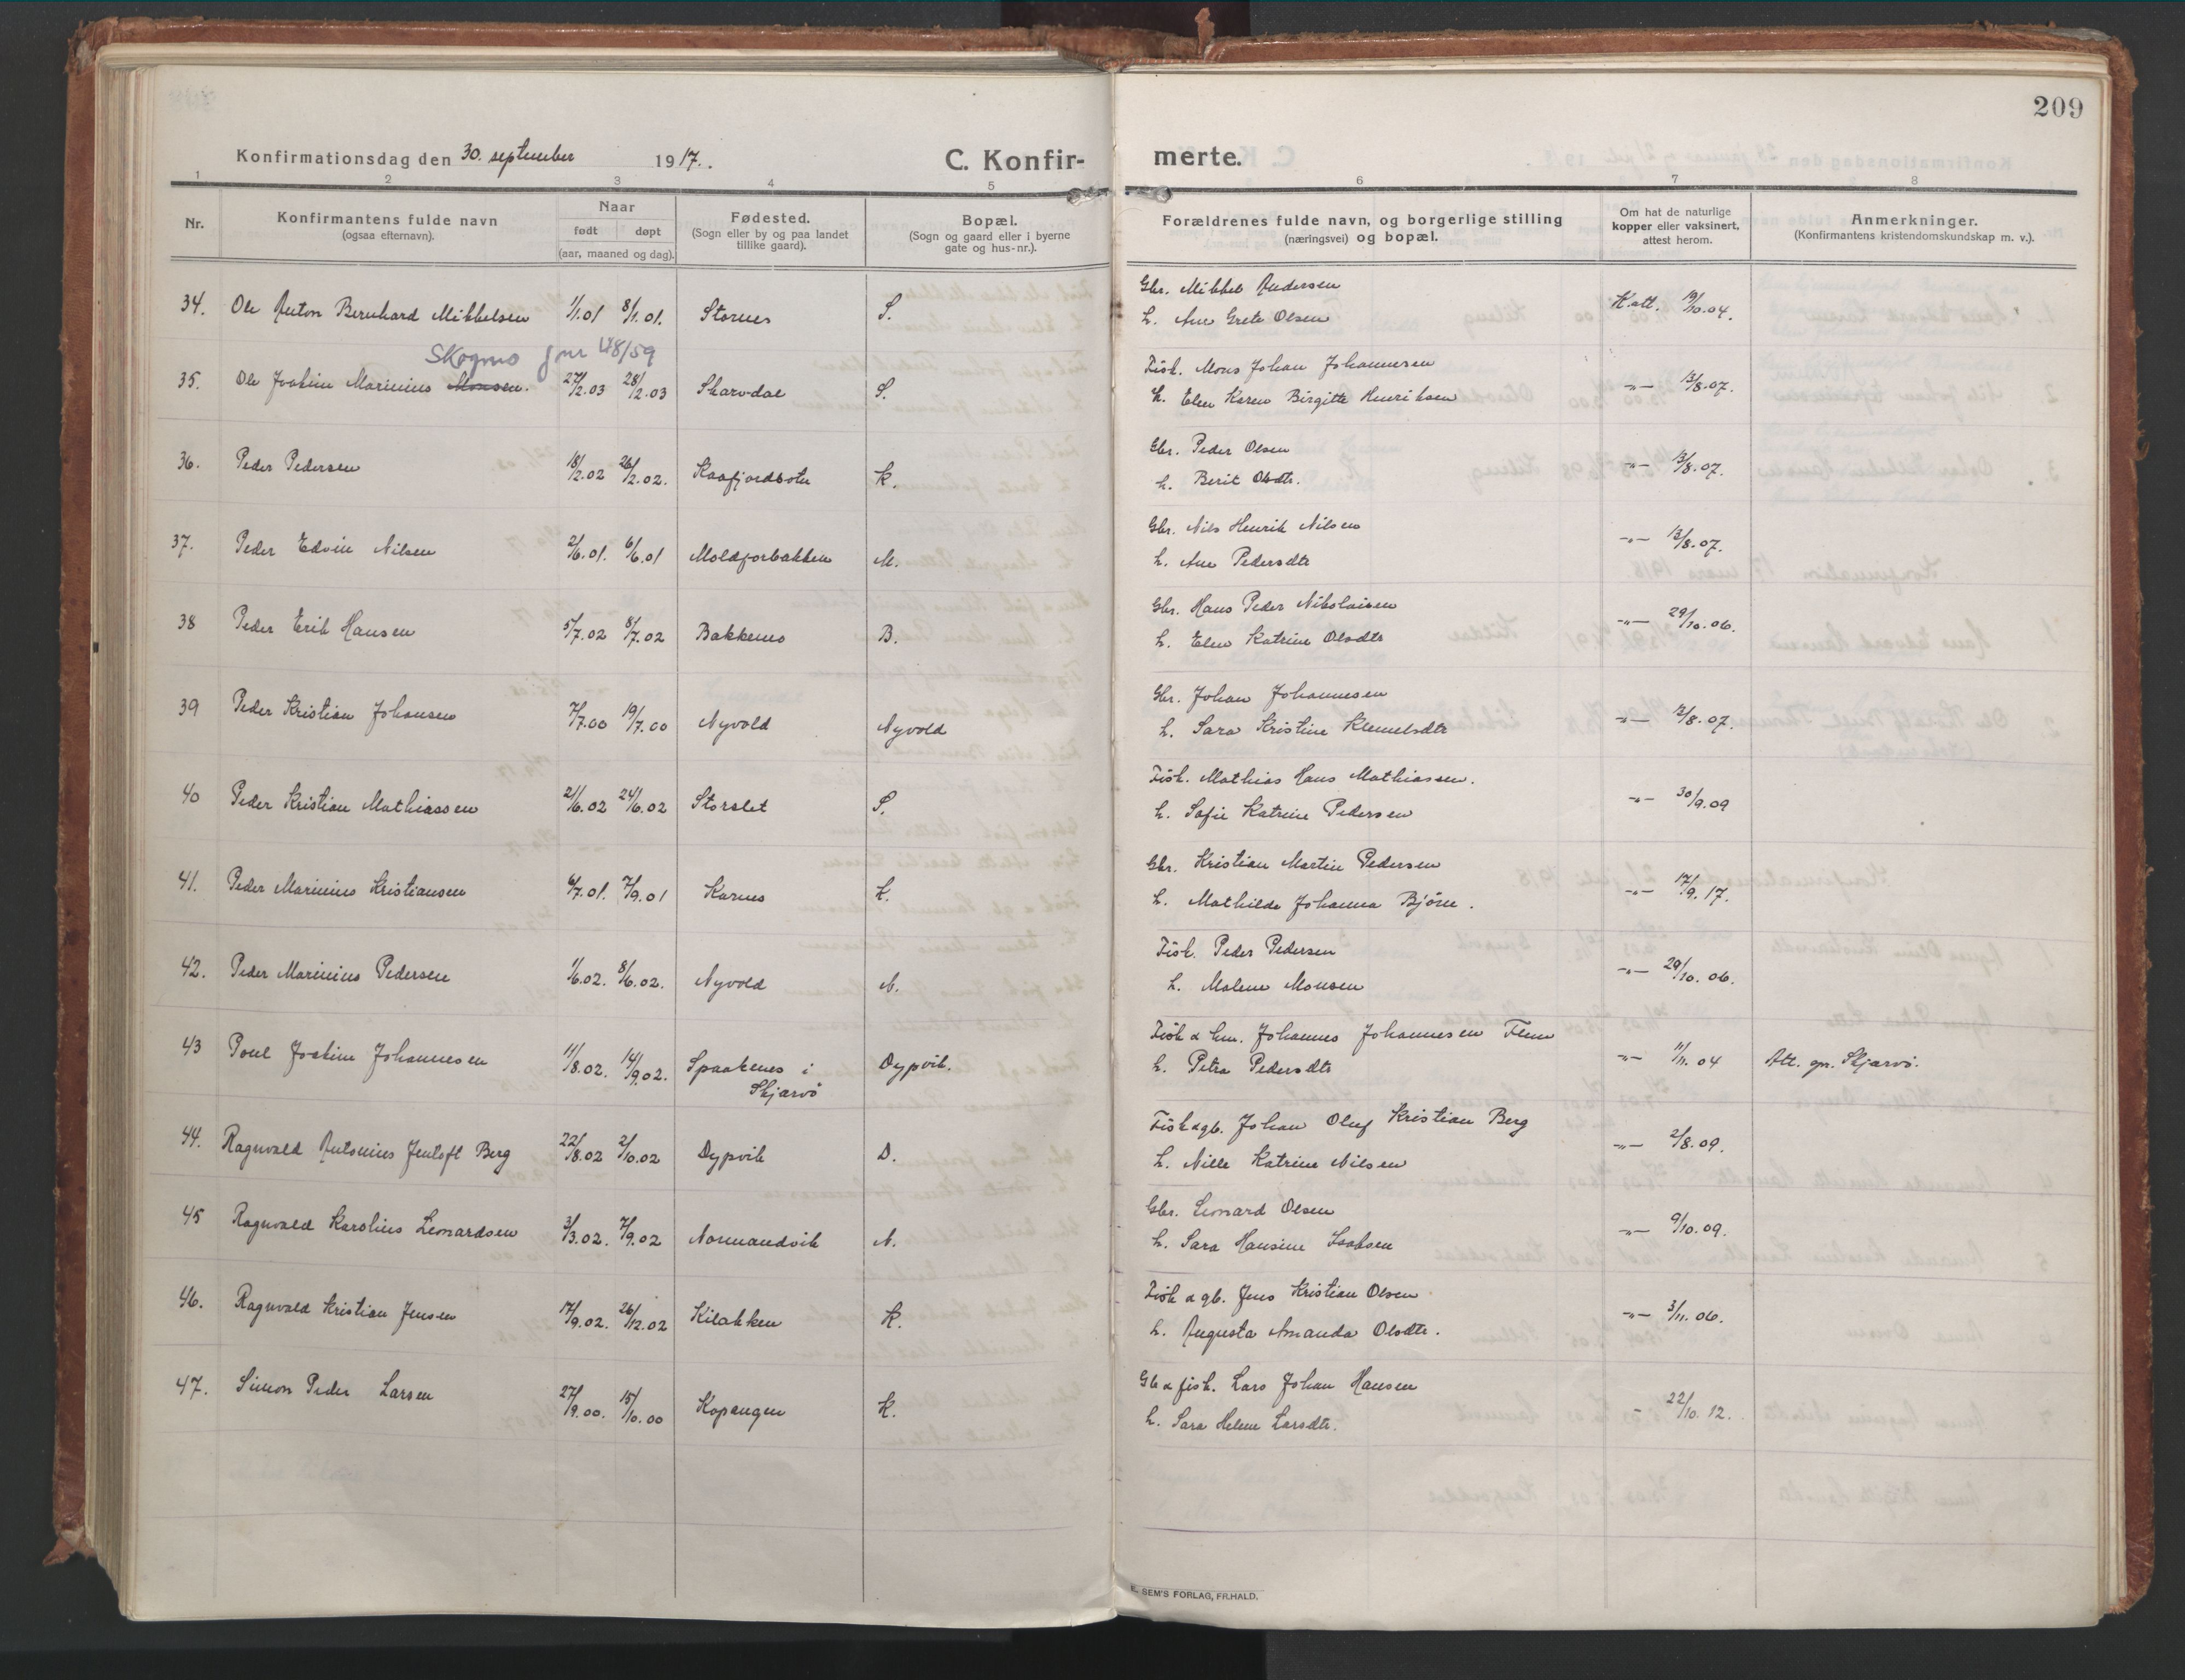 209
Konfirmationsdag den 30. september 1917.
C. Konfir-
merte.
1 2 3 4 5 6 7 8
Nr.
Konfirmantens fulde navn
(ogsaa efternavn).
Naar
født døpt
(aar, maaned og dag).
Fødested.
(Sogn eller by og paa landet
tillike gaard).
Bopæl.
(Sogn og gaard eller i byerne
gate og hus-nr.).
Forældrenes fulde navn, og borgerlige stilling
(næringsvei) og bopæl.
Om hat de naturlige
kopper eller vaksinert,
attest herom.
Anmerkninger.
(Konfirmantens kristendomskundskap m. v.).
34. Ole Anton Bernhard Mikkelsen 1/1.01 8/1.01. Stornes S.
Gbr. Mikkel Andersen
h. Ane Grete Olsen
K.att. 19/10.04.
Skogmo jnr 48/59
35. Ole Joakim Marinius Monsen. 27/2.03 28/2.03 Skarvdal S.
Fisk. Mons Johan Johannesen
h. Elen Karen Birgitte Henriksen
-"- 13/8.07.
36. Peder Pedersen 18/2.02 26/2.02. Kaafjordbotn K.
Gbr. Peder Olsen
h. Berit Olsdtr.
-"- 13/8.07.
37. Peder Edvin Nilsen 2/6.01. 6/6.01 Moldforbakken M.
Gbr. Nils Henrik Nilsen
h. Ane Pedersdtr
-"- 13/8.07.
38 Peder Erik Hansen 5/7.02 8/7.02 Bakkemo B.
Gbr. Hans Peder Nikolaisen
h. Elen Katrine Olsdtr
-"- 29/10.06.
39 Peder Kristian Johansen 7/7.00 19/7.00 Nyvold Nyvold
Gbr. Johan Johannesen
h. Sara Kristine Klemetsdtr
-"- 12/8.07.
40 Peder Kristian Mathiassen 21/6.02 24/6.02 Storslet S.
Fisk. Mathias Hans Mathiassen.
h. Sofie Katrine Pedersen
-"- 30/9.09
41. Peder Marinius Kristiansen 6/7.01. 7/9.01 Karnes K.
Gbr. Kristian Martin Pedersen
h. Mathilde Johanna Bjørn.
-"- 17/9.17.
42. Peder Marinius Pedersen 1/6.02. 8/6.02. Nyvold N.
Fisk. Peder Pedersen
h. Malene Monsen
-"- 29/10.06.
43 Poul Joakim Johannesen 11/8.02. 14/9.02. Spaakenes i
Skjærvö
Dypvik.
Fisk & hm. Johannes Johannesen Flem
h. Petra Pedersdtr
-"- 11/11.04 Att. spr. Skjærvö.
44. Ragnvald Antonius Jentoft Berg 22/8.02 2/10.02 Dypvik D.
Fisk & gb. Johan Oluf Kristian Berg
h. Nille Katrine Nilsen
-"- 2/8.09.
45 Ragnvald Karolius Leonardsen 3/3.02. 7/9.02 Normandvik N.
Gbr. Leonard Olsen
h. Sara Hansine Isaksen
-"- 9/10.09.
46. Ragnvald Kristian Jensen 17/9.02. 26/12.02 Kilakken K.
Fisk & gb. Jens Kristian Olsen
h. Augusta Amanda Olsdtr.
-"- 3/11.06.
47. Simon Peder Larsen 27/9.00. 15/10.00 Kopangen K.
Gb & fisk. Lars Johan Hansen
h. Sara Helene Larsdtr.
- 22/10.12.
E. SEM'S FORLAG, FR.HALD.